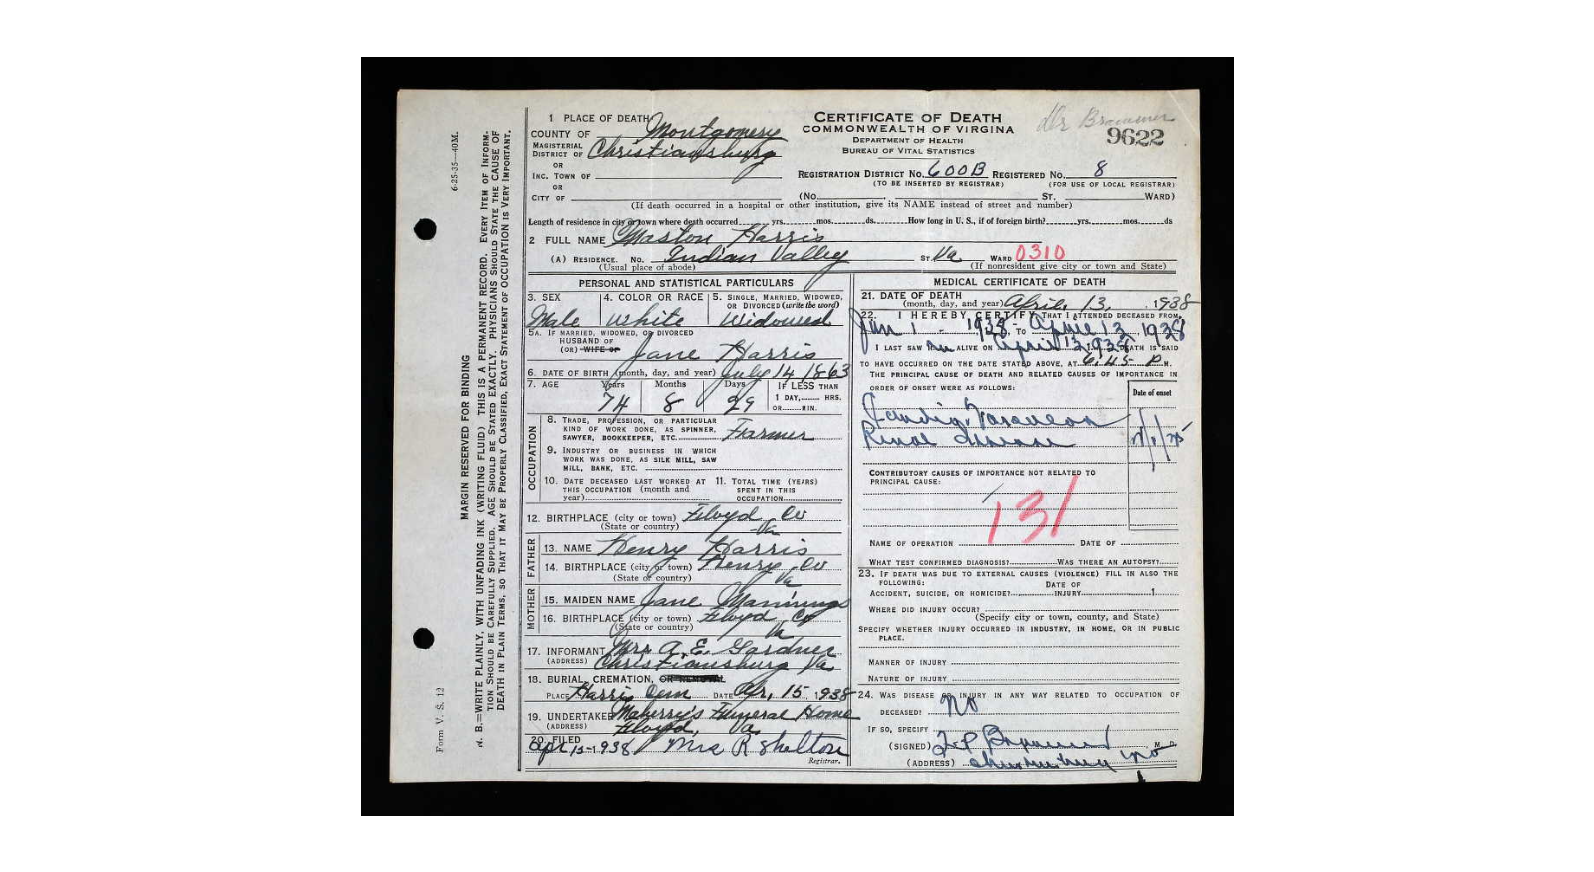 1 PLACE OF DEATH
COUNTY OF Montgomery
MAGISTERIAL DISTRICT OF Christiansburg
OR
INC. TOWN OF
OR
CITY OF
CERTIFICATE OF DEATH
COMMONWEALTH OF VIRGINA
DEPARTMENT OF HEALTH
BUREAU OF VITAL STATISTICS
Dr Brammer
9622
REGISTRATION DISTRICT NO. 600B REGISTERED NO. 8
(TO BE INSERTED BY REGISTRAR) (FOR USE OF LOCAL REGISTRAR)
(No. ST. WARD)
(If death occurred in a hospital or other institution, give its NAME instead of street and number)
Length of residence in city or town where death occurred yrs. mos. ds. How long in U. S., if of foreign birth? yrs. mos. ds
2 FULL NAME Maston Harris
(A) RESIDENCE. No. Indian Valley ST. Va WARD 0310
(Usual place of abode) (If nonresident give city or town and State)
PERSONAL AND STATISTICAL PARTICULARS
3. SEX Male
4. COLOR OR RACE White
5. SINGLE, MARRIED, WIDOWED, OR DIVORCED (write the word) Widowed
5A. IF MARRIED, WIDOWED, OR DIVORCED
HUSBAND OF
(OR) WIFE OF Jane Harris
6. DATE OF BIRTH (month, day, and year) July 14 1863
7. AGE Years 74 Months 8 Days 29 IF LESS THAN
1 DAY, HRS.
OR MIN.
OCCUPATION
8. TRADE, PROFESSION, OR PARTICULAR
KIND OF WORK DONE, AS SPINNER,
SAWYER, BOOKKEEPER, ETC. Farmer
9. INDUSTRY OR BUSINESS IN WHICH
WORK WAS DONE, AS SILK MILL, SAW
MILL, BANK, ETC.
10. DATE DECEASED LAST WORKED AT
THIS OCCUPATION (month and
year)
11. TOTAL TIME (YEARS)
SPENT IN THIS
OCCUPATION
12. BIRTHPLACE (city or town) Floyd Co
(State or country) Va
FATHER
13. NAME Henry Harris
14. BIRTHPLACE (city or town) Henry Co
(State or country) Va
MOTHER
15. MAIDEN NAME Jane Mannings
16. BIRTHPLACE (city or town) Floyd Co
(State or country) Va
17. INFORMANT Mrs A. E. Gardner
(ADDRESS) Christiansburg Va
18. BURIAL, CREMATION, OR REMOVAL
PLACE Harris Cem DATE Apr, 15, 1938
19. UNDERTAKER Maberry's Funeral Home
(ADDRESS) Floyd, Va
20. FILED Apr 15-1938 Mrs R Shelton
Registrar.
MEDICAL CERTIFICATE OF DEATH
21. DATE OF DEATH
(month, day, and year) April, 13, 1938
22. I HEREBY CERTIFY THAT I ATTENDED DECEASED FROM
Jan 1 - 1938 - TO April 13 1938
I LAST SAW ALIVE ON April 13 1938 DEATH IS SAID
TO HAVE OCCURRED ON THE DATE STATED ABOVE, AT 6:45 P. M.
THE PRINCIPAL CAUSE OF DEATH AND RELATED CAUSES OF IMPORTANCE IN
ORDER OF ONSET WERE AS FOLLOWS:
Date of onset
Renal disease
CONTRIBUTORY CAUSES OF IMPORTANCE NOT RELATED TO
PRINCIPAL CAUSE:
131
NAME OF OPERATION DATE OF
WHAT TEST CONFIRMED DIAGNOSIS? WAS THERE AN AUTOPSY?
23. IF DEATH WAS DUE TO EXTERNAL CAUSES (VIOLENCE) FILL IN ALSO THE
FOLLOWING:
ACCIDENT, SUICIDE, OR HOMICIDE? DATE OF INJURY 1
WHERE DID INJURY OCCUR?
(Specify city or town, county, and State)
SPECIFY WHETHER INJURY OCCURRED IN INDUSTRY, IN HOME, OR IN PUBLIC
PLACE.
MANNER OF INJURY
NATURE OF INJURY
24. WAS DISEASE OR INJURY IN ANY WAY RELATED TO OCCUPATION OF
DECEASED? No
IF SO, SPECIFY
(SIGNED) M. D.
(ADDRESS)
6-25-35—40M.
MARGIN RESERVED FOR BINDING
N. B.—WRITE PLAINLY, WITH UNFADING INK (WRITING FLUID) THIS IS A PERMANENT RECORD. EVERY ITEM OF INFORM-
TION SHOULD BE CAREFULLY SUPPLIED. AGE SHOULD BE STATED EXACTLY. PHYSICIANS SHOULD STATE THE CAUSE OF
DEATH IN PLAIN TERMS, SO THAT IT MAY BE PROPERLY CLASSIFIED. EXACT STATEMENT OF OCCUPATION IS VERY IMPORTANT.
Form V. S. 12